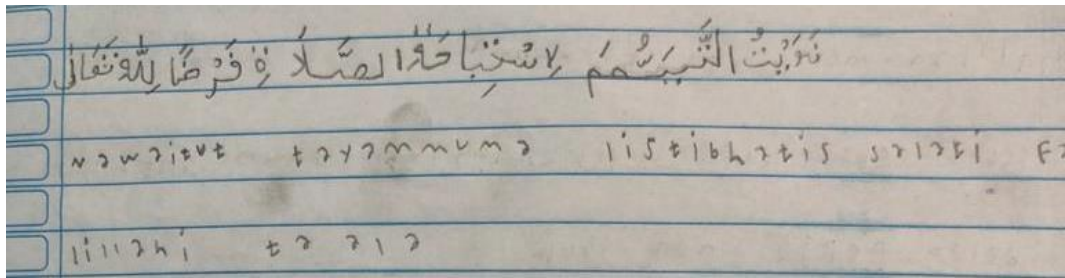 نَوَيْتُ التَّيَمُّمَ لِاسْتِبَاحَةِ الصَّلَاةِ فَرْضًا لِلّٰهِ تَعَالَى
nawaitut tayammuma listibhatis salati Fa
lillahi ta ala